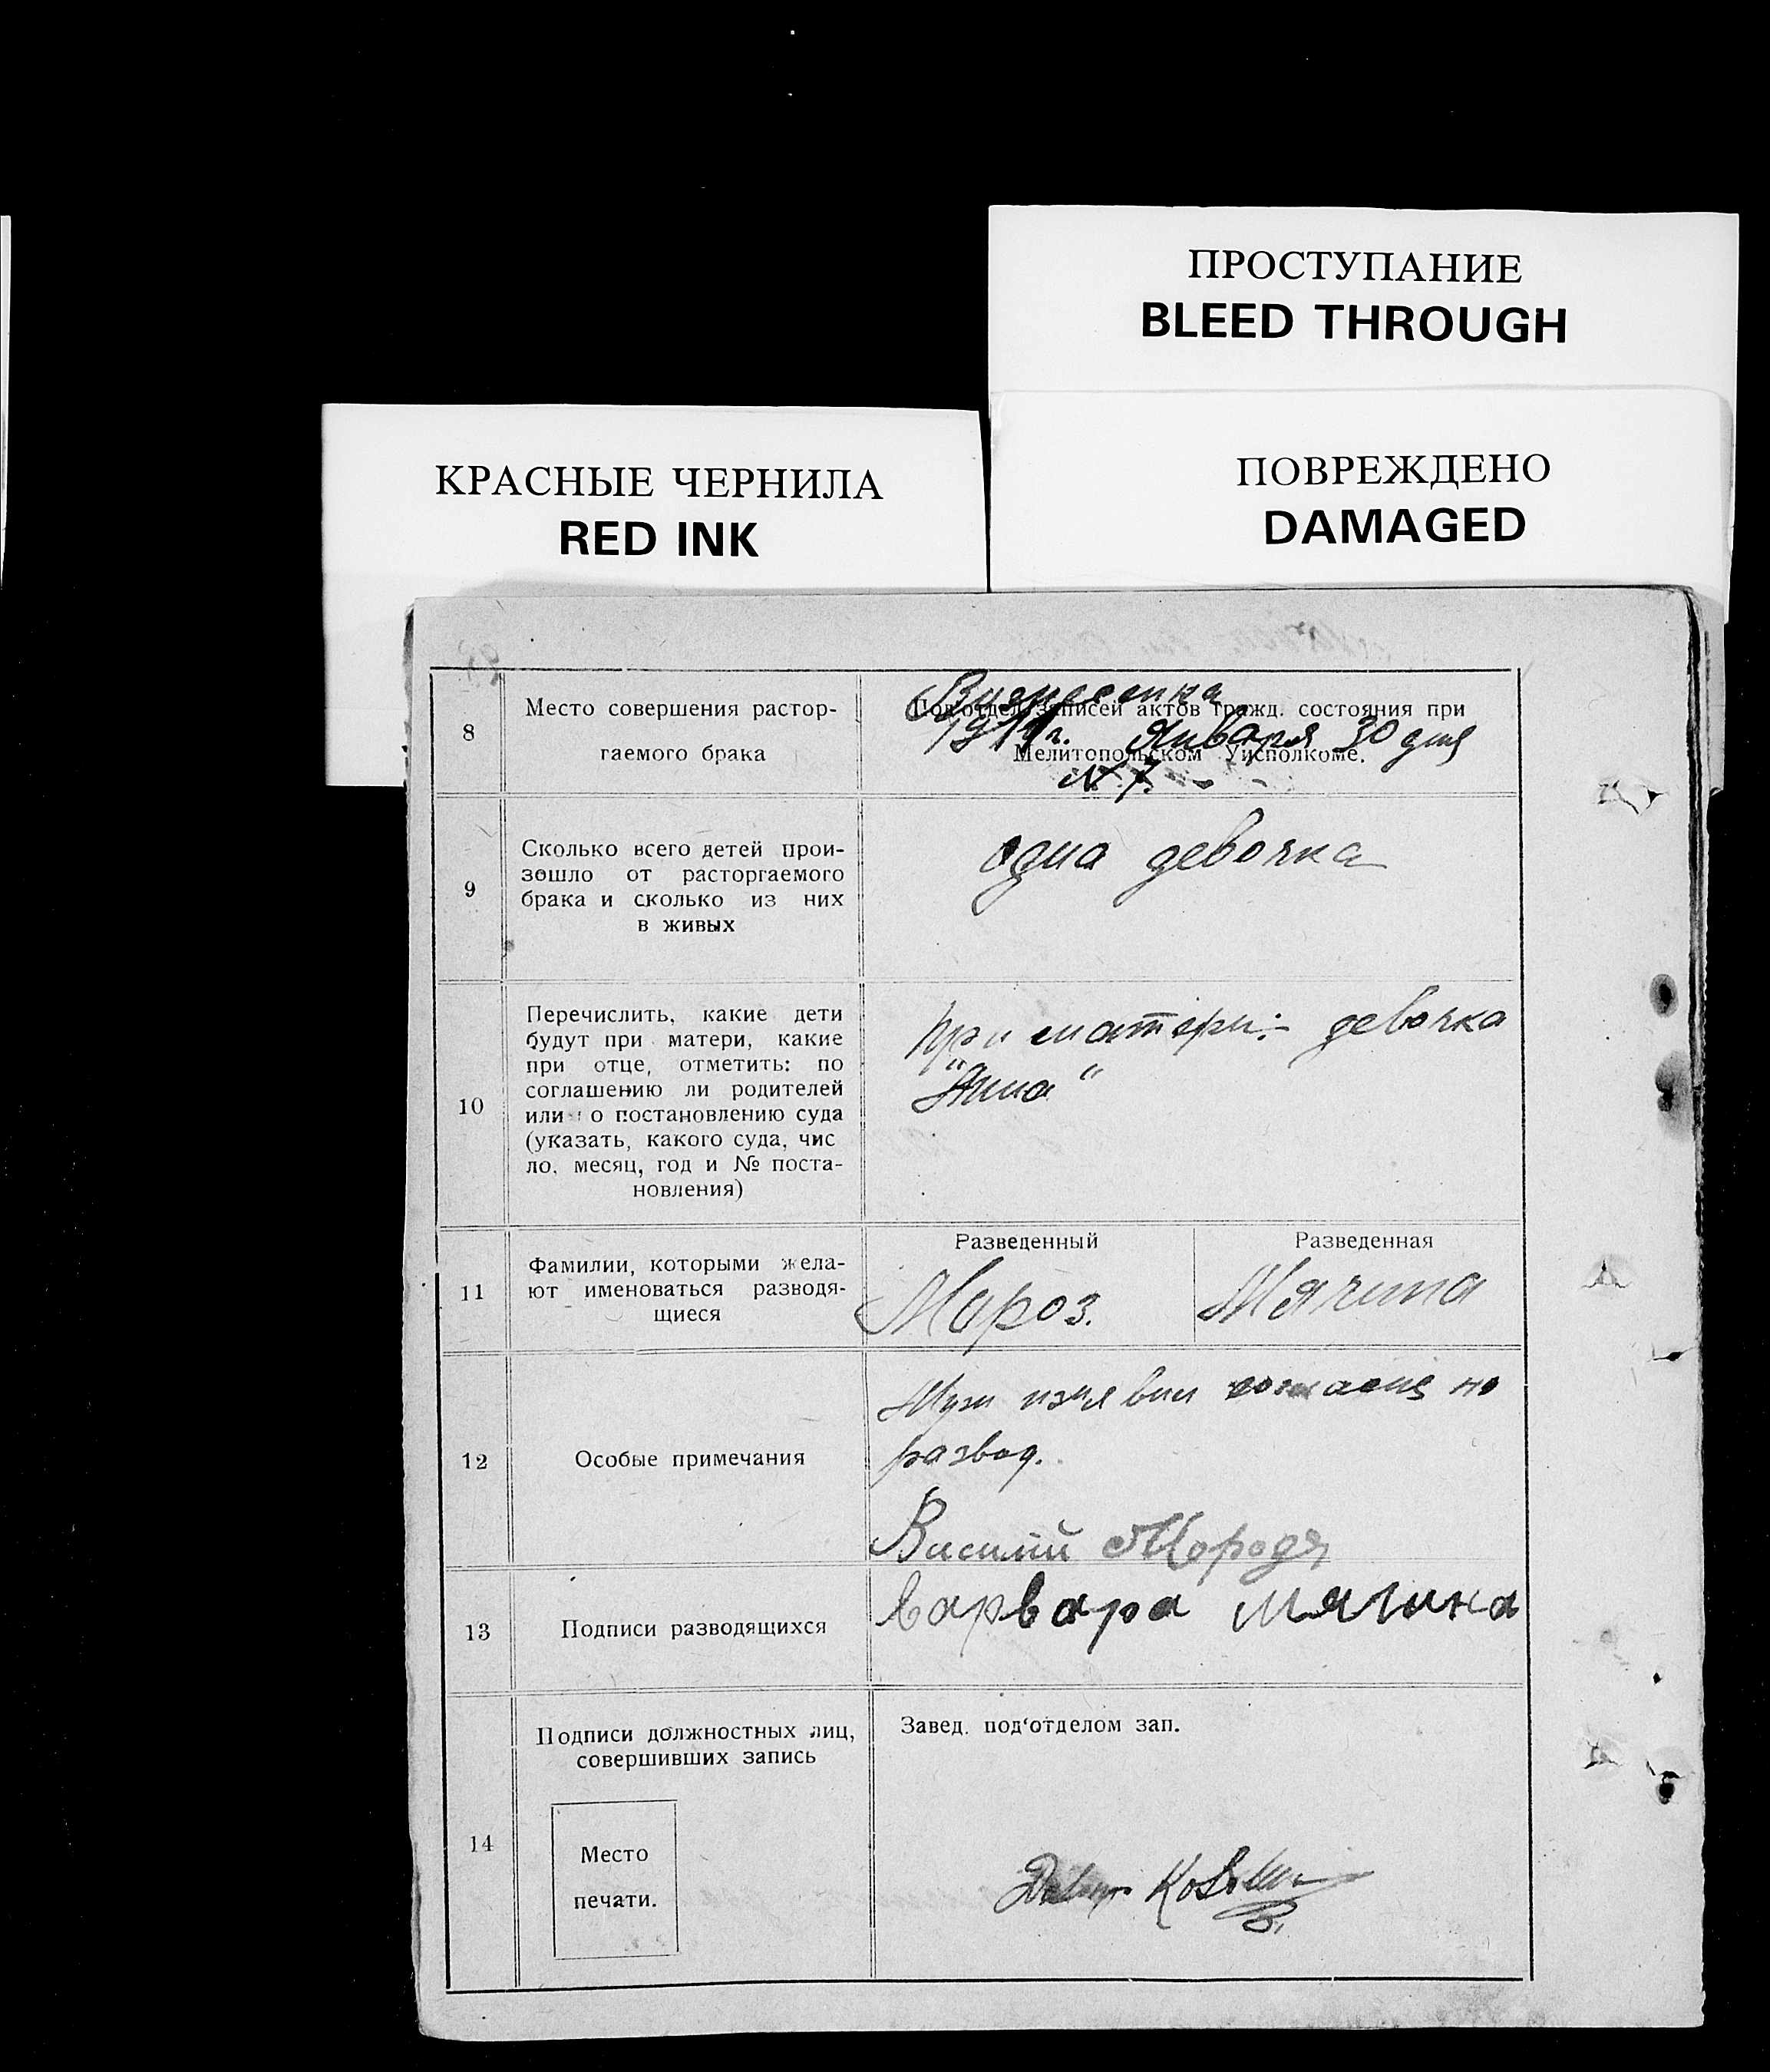 ПРОСТУПАНИЕ
BLEED THROUGH
КРАСНЫЕ ЧЕРНИЛА
RED INK
ПОВРЕЖДЕНО
DAMAGED
8
Место совершения растор-
гаемого брака
Под'отдел записей актов гражд. состояния при
Мелитопольском Уисполкоме.
Января 30 дня
№ 7.
9
Сколько всего детей прои-
зошло от расторгаемого
брака и сколько из них
в живых
одна девочка
10
Перечислить, какие дети
будут при матери, какие
при отце, отметить: по
соглашению ли родителей
или о постановлению суда
(указать, какого суда, чис
ло, месяц, год и № поста-
новления)
при матери:- девочка
"Анна"
11
Фамилии, которыми жела-
ют именоваться разводя-
щиеся
Разведенный
Мороз.
Разведенная
Мячина
12
Особые примечания
Муж изъявил согласие на
развод.
Василий
13
Подписи разводящихся
Варвара Мячина
14
Подписи должностных лиц,
совершивших запись
Место
печати.
Завед. под'отделом зап.